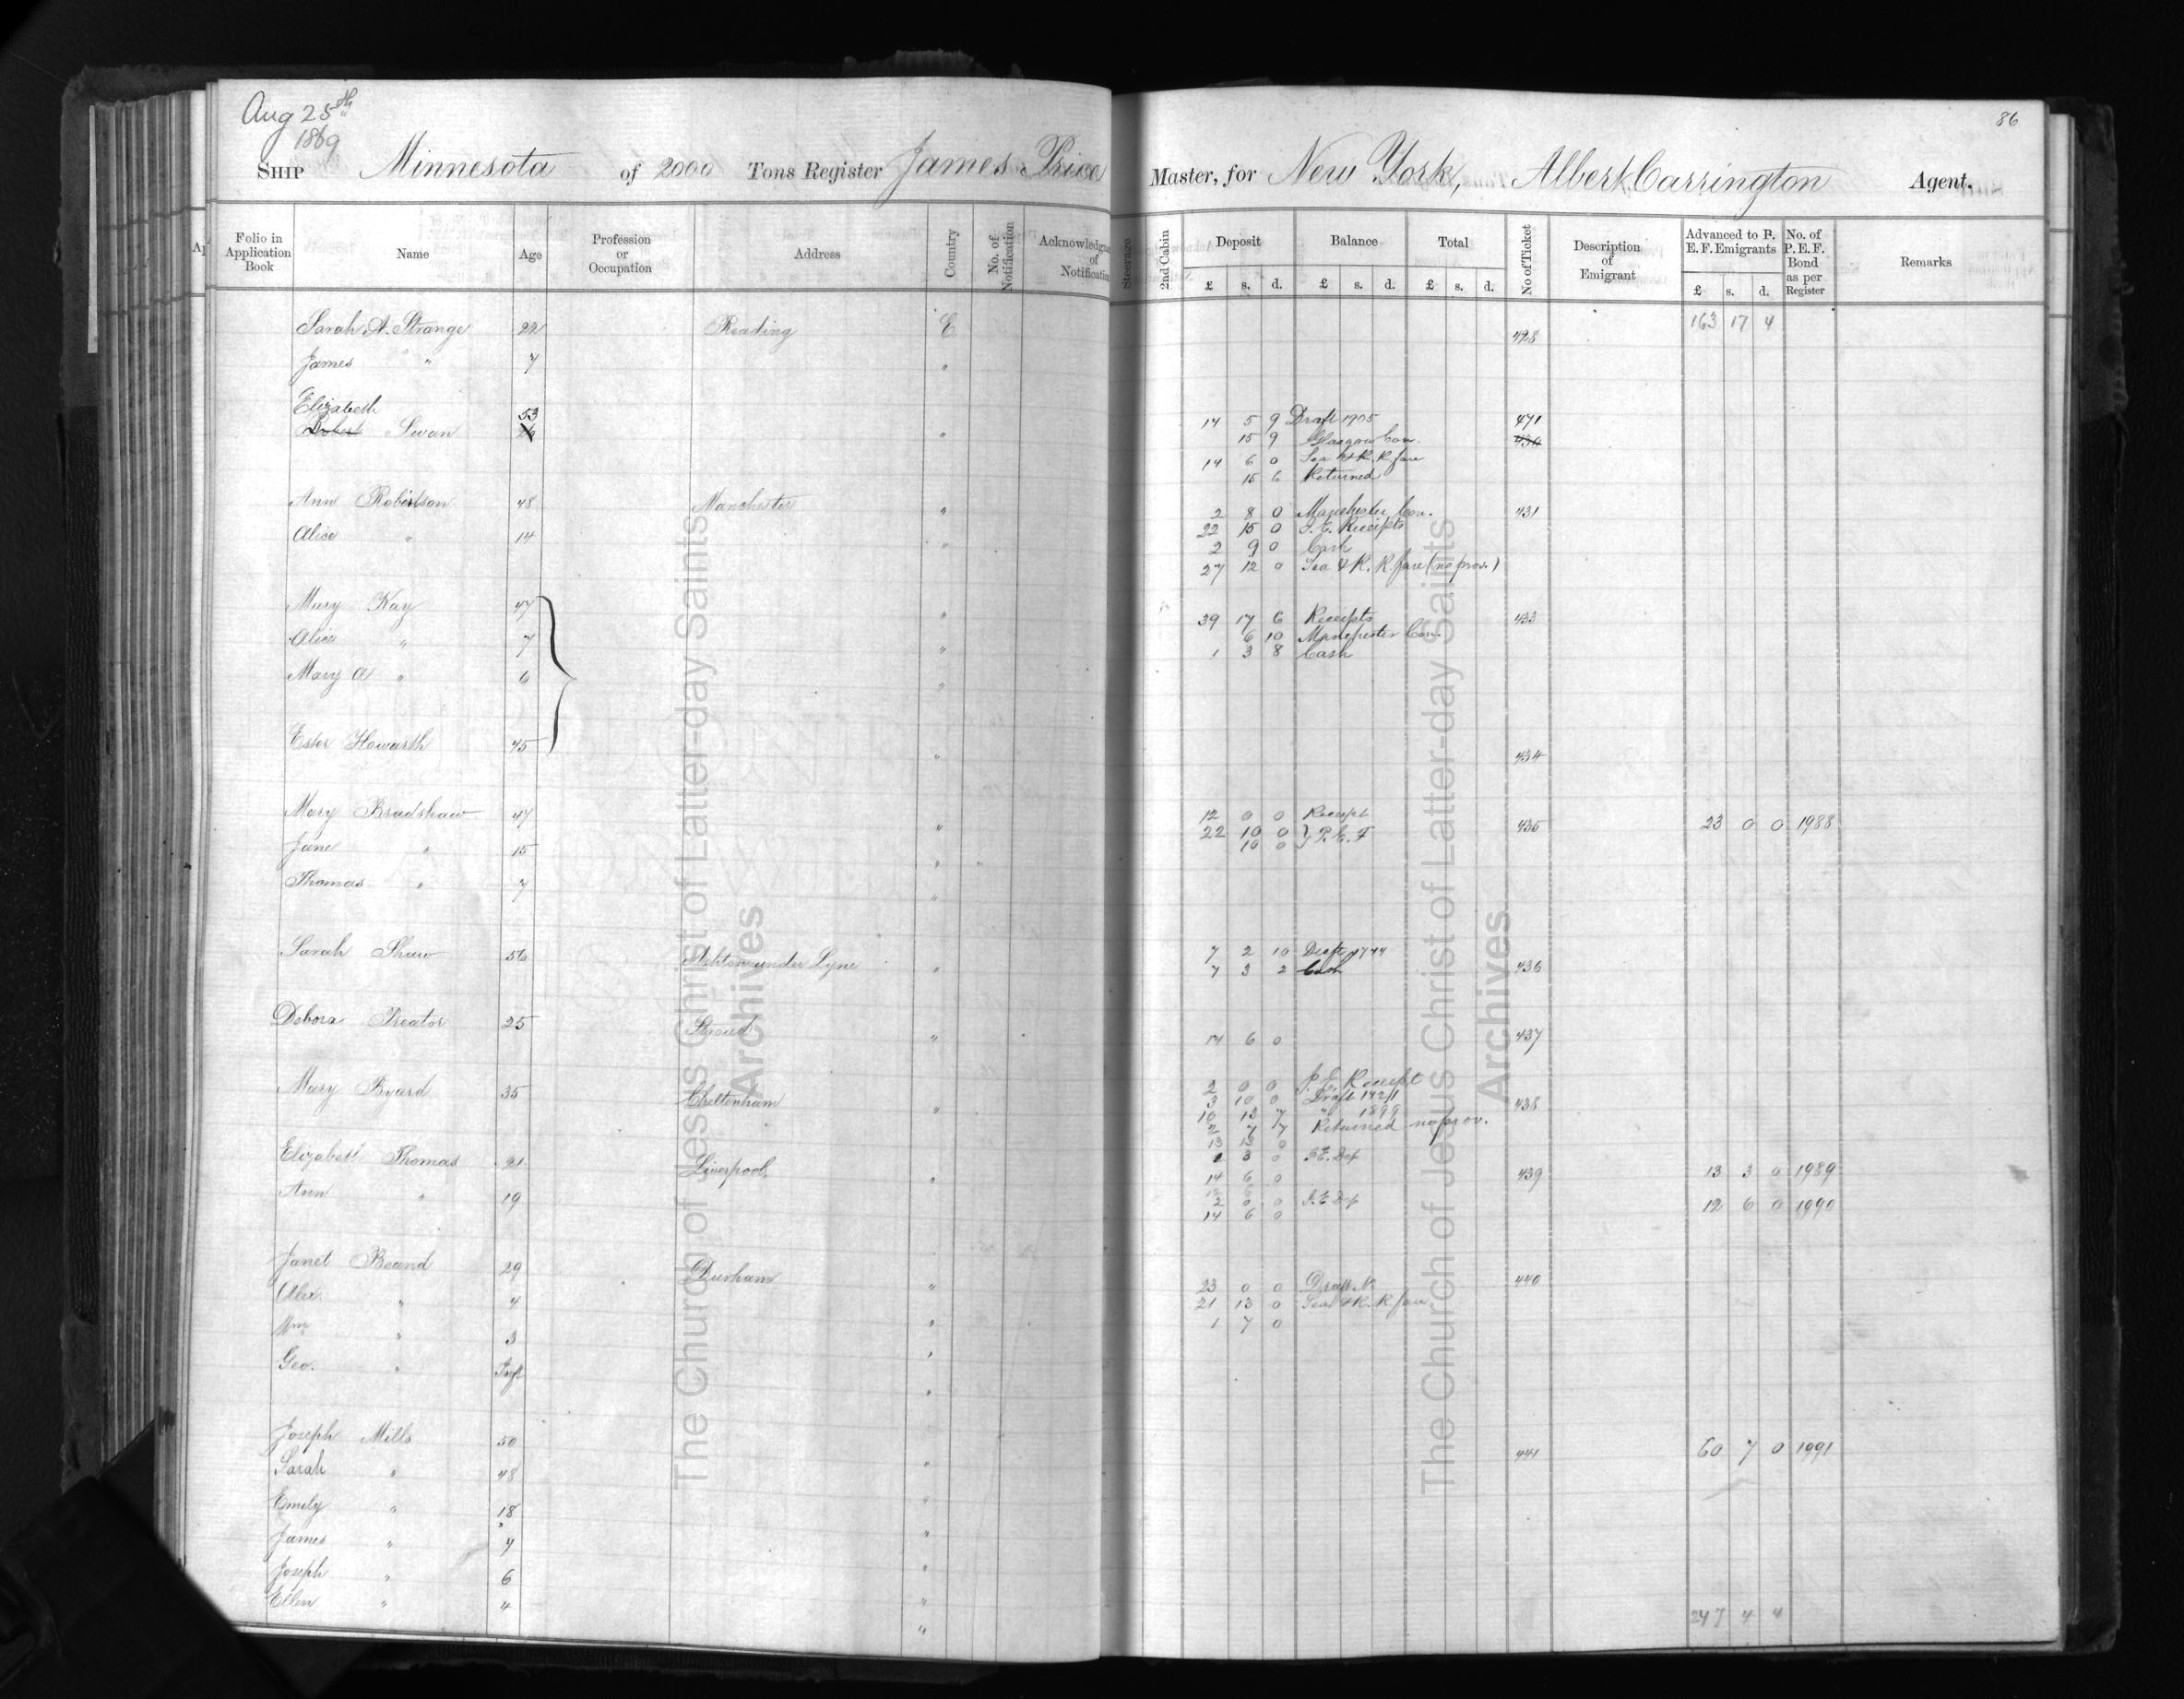 Aug 25th
1869
86
Ship Minnesota of 2000 Tons Register James Price Master, for New York, Albert Carrington Agent.
Folio in Application Book Name Age Profession or Occupation Address Country No. of Notification Acknowledgm of Notification Steerage 2nd Cabin Deposit £ s. d. Balance £ s. d. Total £ s. d. No of Ticket Description of Emigrant Advanced to P. E. F. Emigrants £ s. d. No. of P. E. F. Bond as per Register Remarks
163 17 4
Sarah A. Strange 22 Reading E 428
James " 7 "
Elizabeth 53 14 5 9 Draft 1905 471
Robert Swan 26 " 15 9 Glasgow Con. 430
14 6 0 Sea & R. R. fare
15 6 Returned
Ann Robertson 48 Manchester " 2 8 0 Manchester Con. 431
22 15 0 I. E. Receipts
Alice " 14 " 2 9 0 Cash
27 12 0 Sea & R. R. fare (no prov.)
Mary Kay 47 " 39 17 6 Receipts 433
Alice " 7 " 6 10 Manchester Con.
1 3 8 Cash
Mary A " 6 "
Ester Howarth 45 " 434
Mary Bradshaw 47 " 12 0 0 Receipt 435 23 0 0 1988
22 10 0 } P. E. F
Jane " 15 " 10 0
Thomas " 7 "
Sarah Shaw 56 Ashton under Lyne " 7 2 10 Draft 1744 436
7 3 2 Cash
Debora Preator 25 Stroud " 14 6 0 437
Mary Byard 35 Cheltenham " 2 0 0 I. E. Receipt 438
3 10 0 Draft 1421
10 13 7 " 1899
2 7 7 Returned no prov.
13 13 0
Elizabeth Thomas 21 Liverpool. " 1 3 0 I E. Dep 439 13 3 0 1989
14 6 0
Ann " 19 2 0 0 I. E Dep 12 6 0 1990
14 6 0
Janet Beand 29 Durham " 23 0 0 Draft No 440
Alex. " 4 " 21 13 0 Sea & R. R fare
1 7 0
Wm " 3 "
Geo. " Inft "
Joseph Mills 50 " 441 60 7 0 1991
Sarah " 48 "
Emily " 18 "
James " 7 "
Joseph " 6 "
Ellen " 4 "
247 4 4
The Church of Jesus Christ of Latter-day Saints
Archives
The Church of Jesus Christ of Latter-day Saints
Archives